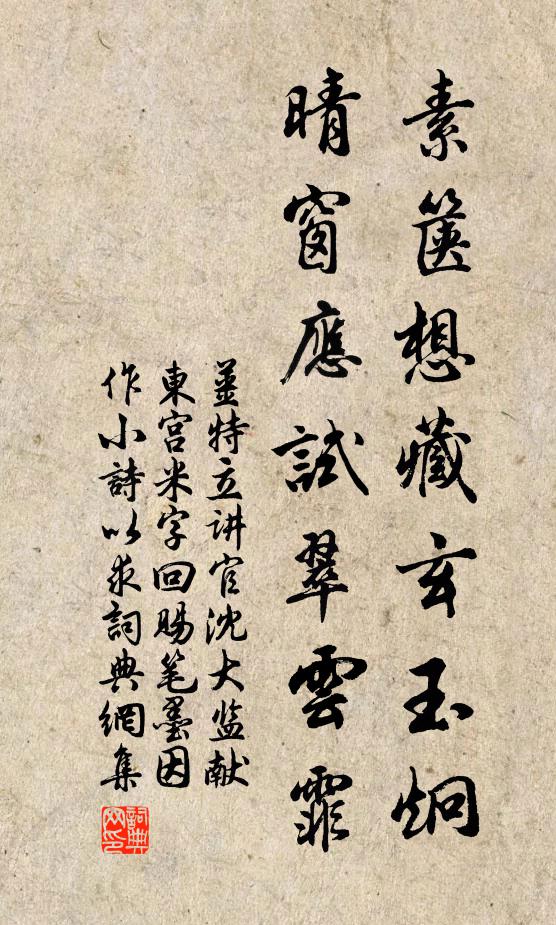 素箧想藏玄玉炯
晴窗應試翠雲霏
姜特立讲官沈大监献
東宮米字回賜笔墨因
作小詩以求詞典網集
詞典網印